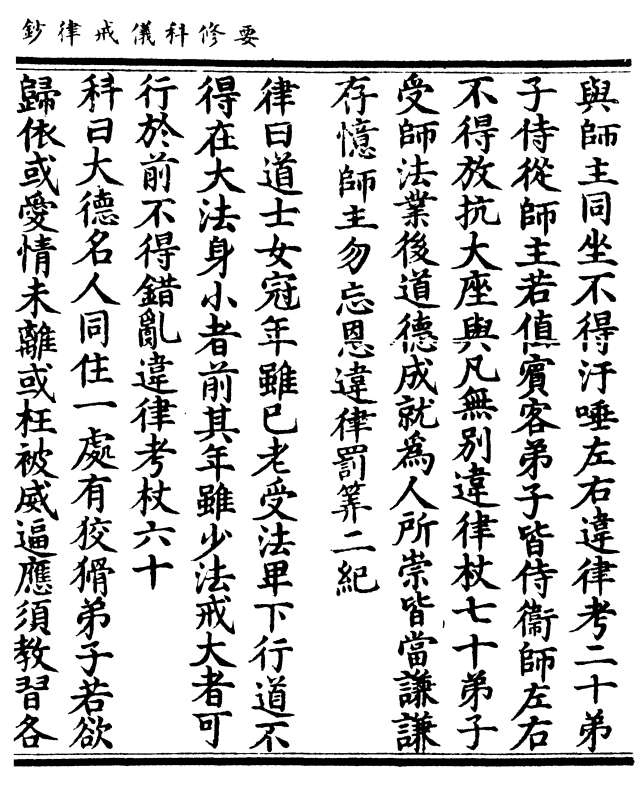 要修科儀戒律鈔
與師主同坐不得汙唾左右違律考二十弟
子侍從師主若值賓客弟子皆侍衞師左右
不得放抗大座與凡無別違律杖七十弟子
受師法業後道德成就為人所崇皆當謙謙
存憶師主勿忘恩違律罰筭二紀
律曰道士女冠年雖已老受法卑下行道不
得在大法身小者前其年雖少法戒大者可
行於前不得錯亂違律考杖六十
科曰大德名人同住一處有狡猾弟子若欲
歸依或愛情未離或枉被威逼應須教習各